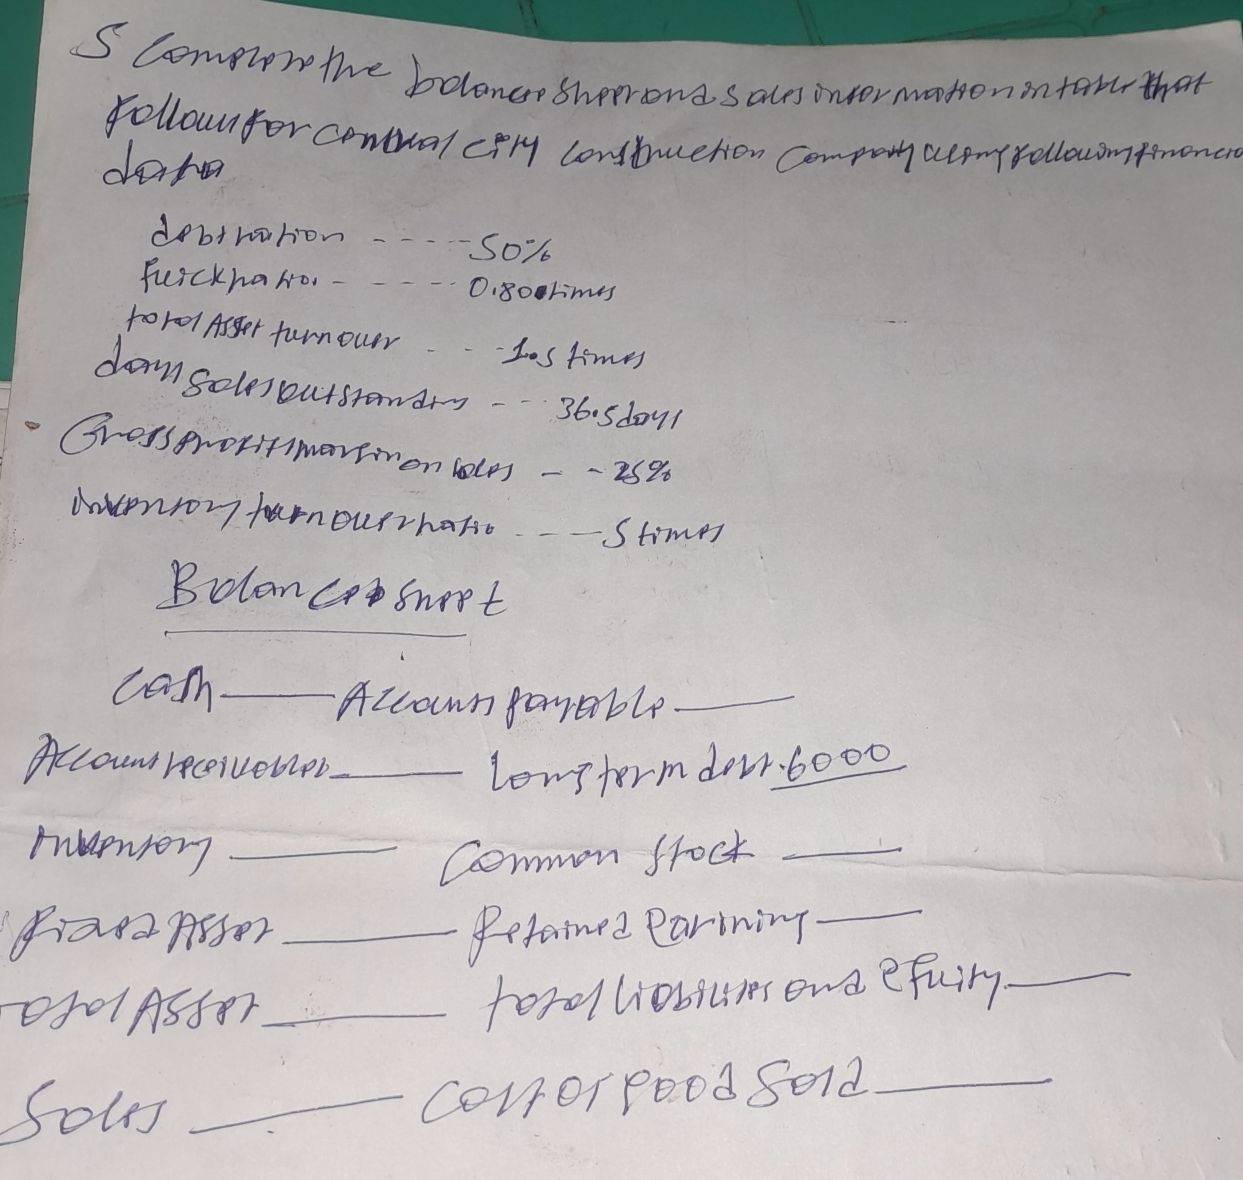 5 Complete the balance sheet and sales information in table that
follows for central city construction company using following financial
data
debt ration ----- 50%
Quick ratio. - ---- 0.80 times
total Asset turnover - - - 1.5 times
days sales outstanding -- - 36.5 days
Gross profit margin on sales - - 25%
inventory turnover ratio --- - 5 times
Balance sheet
Cash ____ Accounts payable ____
Account receivables ____ long term debt. 6000
Inventory ____ Common stock ____
fixed Asset ____ Retained Earining ____
otal Asset ____ total liabilities and equity ____
Sales ____ Cost of good Sold ____